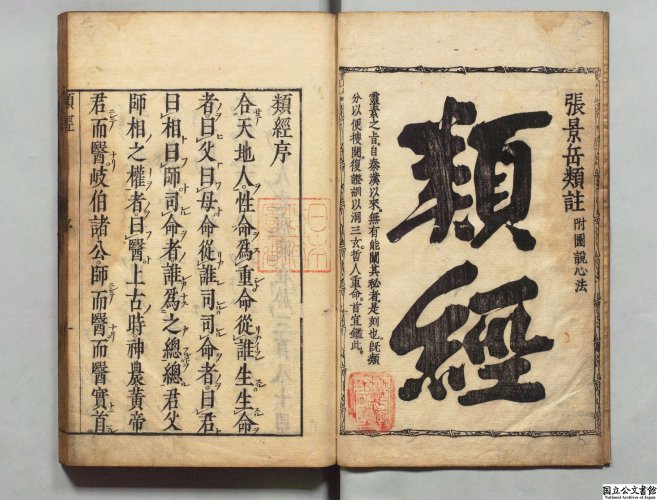 張景岳類註 附圖說心法
類經
靈素之旨自秦漢以來無有能闡其秘者是刻也既類
分以便搜閱復證訓以洞三玄哲人重命首宜鑑此
類經序
合天地人性命為重命從誰生生命
者曰父曰母命從誰司司命者曰君
曰相曰師司命者誰為之總總君父
師相之權者曰醫上古時神農黃帝
君而醫岐伯諸公師而醫醫實首
類經
序
一
国立公文書館
National Archives of Japan